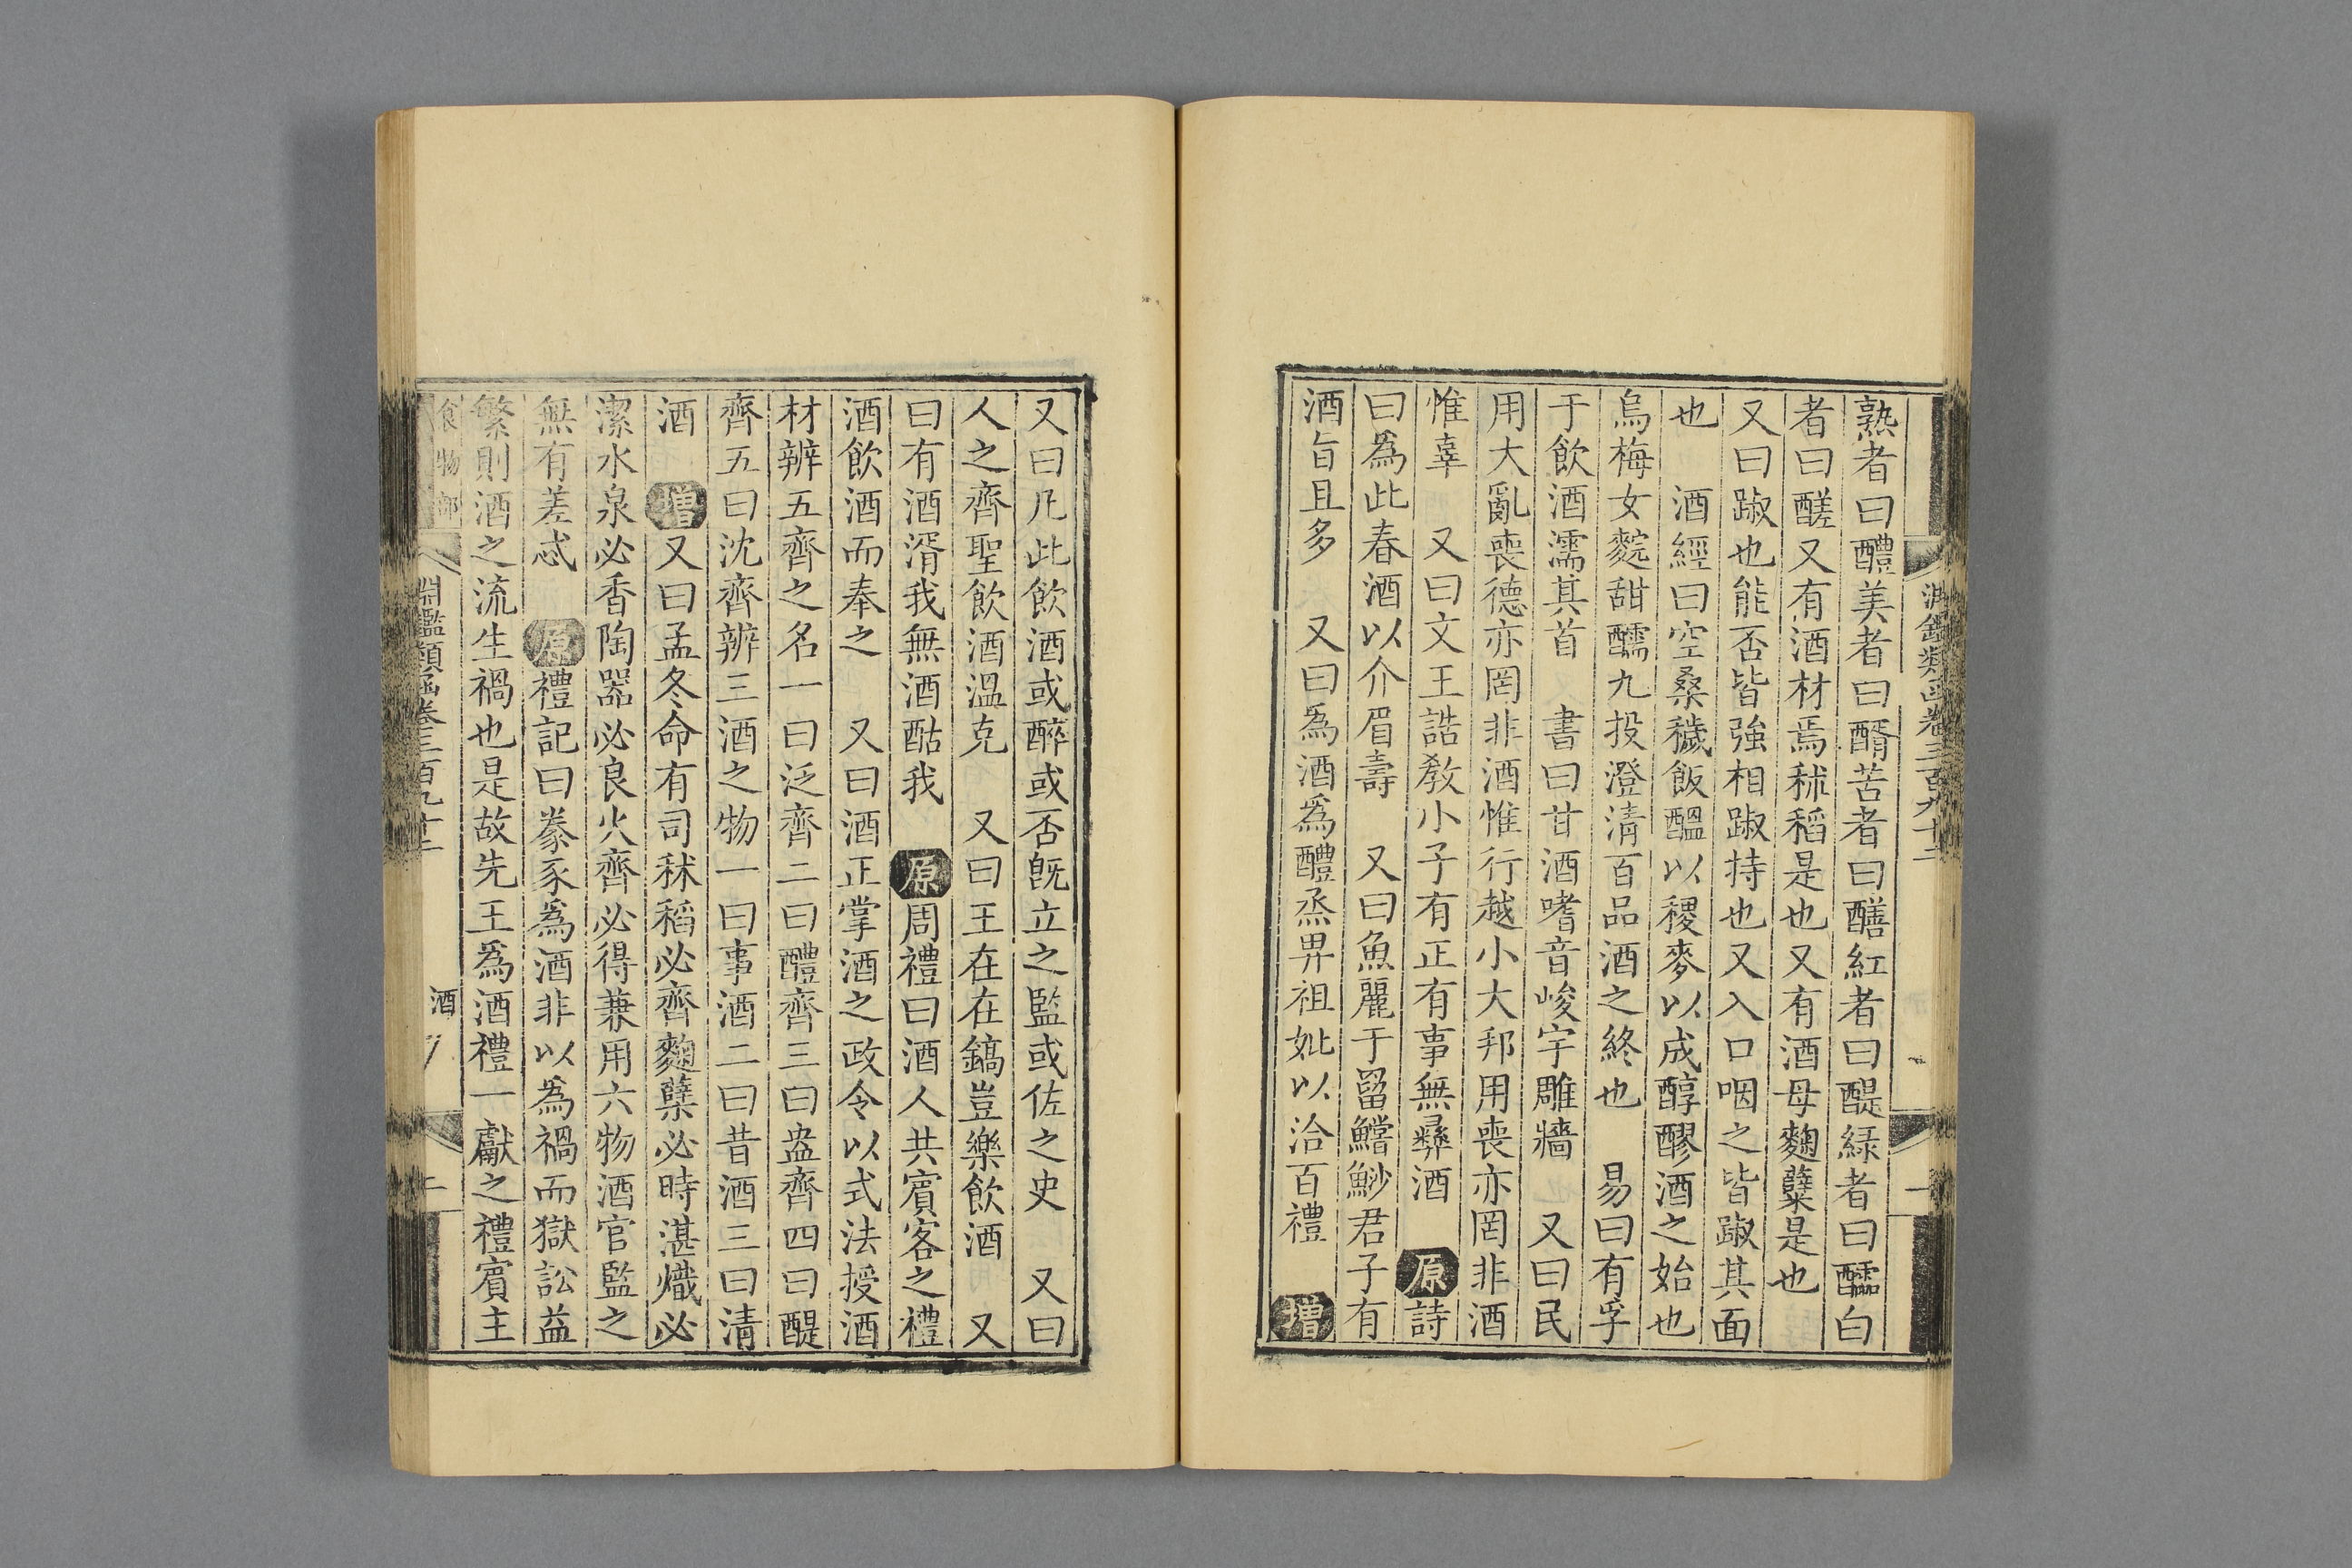 淵鑑類函卷三百九十二
一
熟者曰醴美者曰醑苦者曰䤘紅者曰醍綠者曰醽白
者曰醝又有酒材焉秫稻是也又有酒母麴糵是也
又曰踧也能否皆強相踧持也又入口咽之皆踧其面
也　酒經曰空桑穢飯醞以稷麥以成醇醪酒之始也
烏梅女䴷甜醹九投澄清百品酒之終也　易曰有孚
于飲酒濡其首　書曰甘酒嗜音峻宇雕牆　又曰民
用大亂喪德亦罔非酒惟行越小大邦用喪亦罔非酒
惟辜　又曰文王誥教小子有正有事無彞酒　原詩
曰爲此春酒以介眉壽　又曰魚麗于罶鱨魦君子有
酒旨且多　又曰爲酒爲醴烝畀祖妣以洽百禮　增
又曰凡此飲酒或醉或否旣立之監或佐之史　又曰
人之齊聖飲酒溫克　又曰王在在鎬豈樂飲酒　又
曰有酒湑我無酒酤我　原周禮曰酒人共賓客之禮
酒飲酒而奉之　又曰酒正掌酒之政令以式法授酒
材辨五齊之名一曰泛齊二曰醴齊三曰盎齊四曰醍
齊五曰沈齊辨三酒之物一曰事酒二曰昔酒三曰清
酒　增又曰孟冬命有司秫稻必齊麴糵必時湛熾必
潔水泉必香陶器必良火齊必得兼用六物酒官監之
無有差忒　原禮記曰豢豕爲酒非以爲禍而獄訟益
繁則酒之流生禍也是故先王爲酒禮一獻之禮賓主
食物部　淵鑑類函卷三百九十二　酒